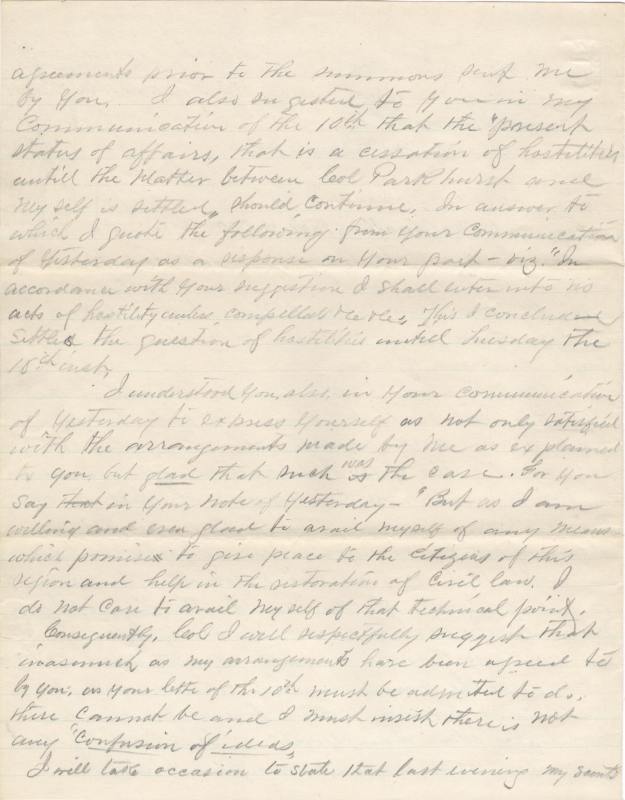 agreements prior to the summons sent me
by you. I also sugested to you in my
Communication of the 10th that the "present
status of affairs, that is a cessation of hostilities
untill the matter between Col Parkhurst and
myself is settled" should continue. In answer to
which I quote the following from your communication
of Yesterday as a response on your part - viz "In
accordance with your suggestion I shall enter into no
acts of hostility unless compelled to. This I conclude
settles the question of hostilities untill Tuesday the
18th inst,
I understood you, also, in your communication
of Yesterday to express yourself as not only satisfied
with the arrangements made by me as explained
to you but glad that such was the case. For you
say that in your note of Yesterday - "But as I am
willing and even glad to avail myself of any means
which promises to give peace to the citizens of this
region and help in the restoration of Civil law. I
do not care to avail myself of that technical point,
Consequently, Col I will respectfully suggest that
inasmuch as my arrangements have been agreed to
by you, as your letter of the 10th must be admitted to do,
there cannot be and I must insist there is not
any "Confusion of ideas"
I will take occasion to state that last evening my